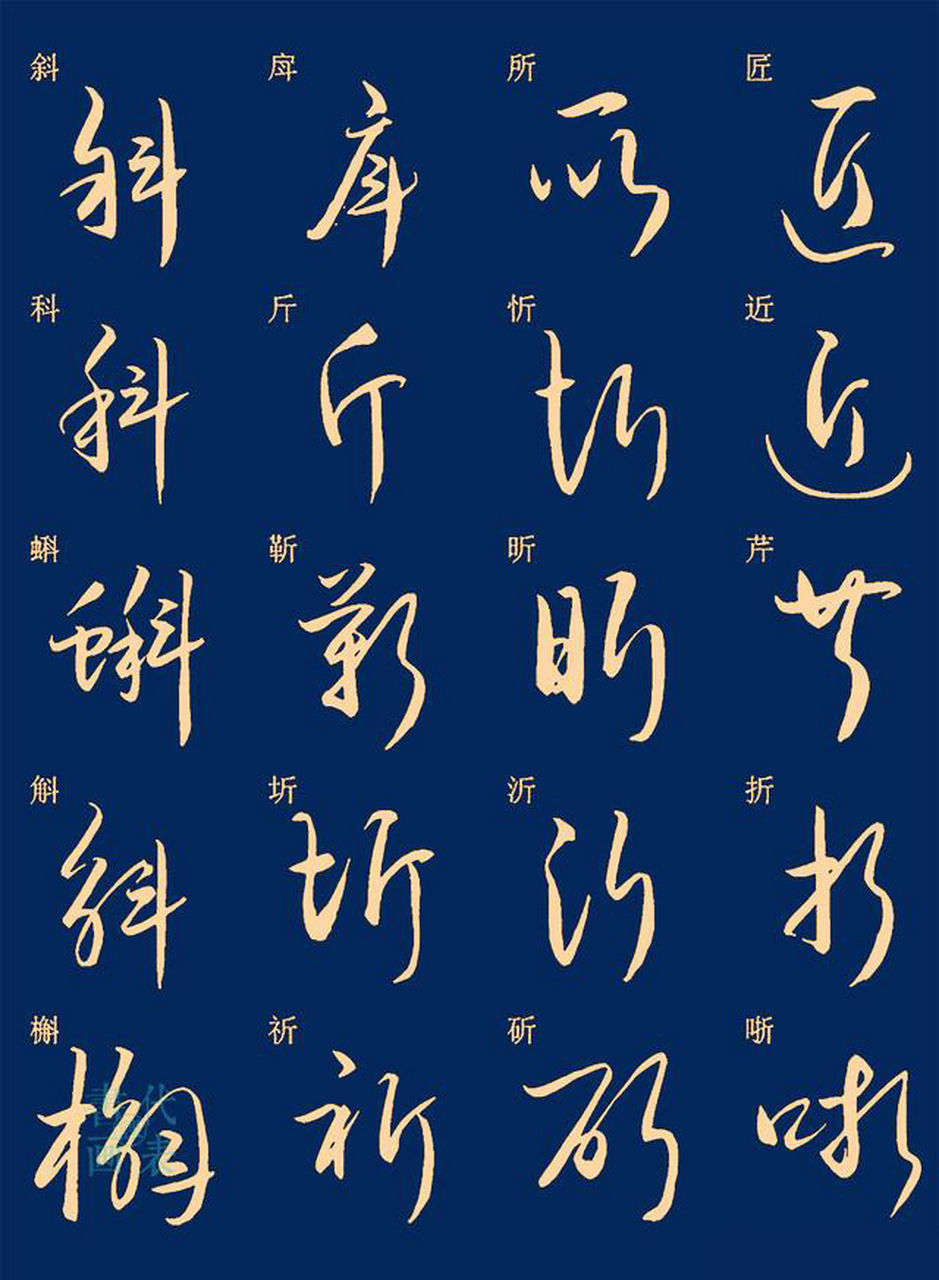 斜 戽 所 匠
斜 戽 所 匠
科 斤 忻 近
科 斤 忻 近
蝌 靳 昕 芹
蝌 靳 昕 芹
斛 圻 沂 折
斛 圻 沂 折
槲 祈 斫 哳
槲 祈 斫 哳
書代
画表